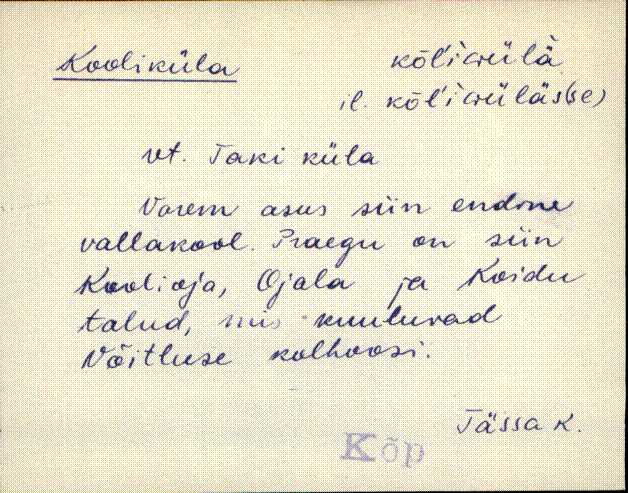 Kooliküla
kōl'icülä
il. kōl'iculäs(se)
vt. Taki küla
Varem asus siin endine
vallakool. Praegu on siin
Koolioja, Ojala ja Koidu
talud, mis kuuluvad
Võitluse kolhoosi.
Tässa k.
Kõp